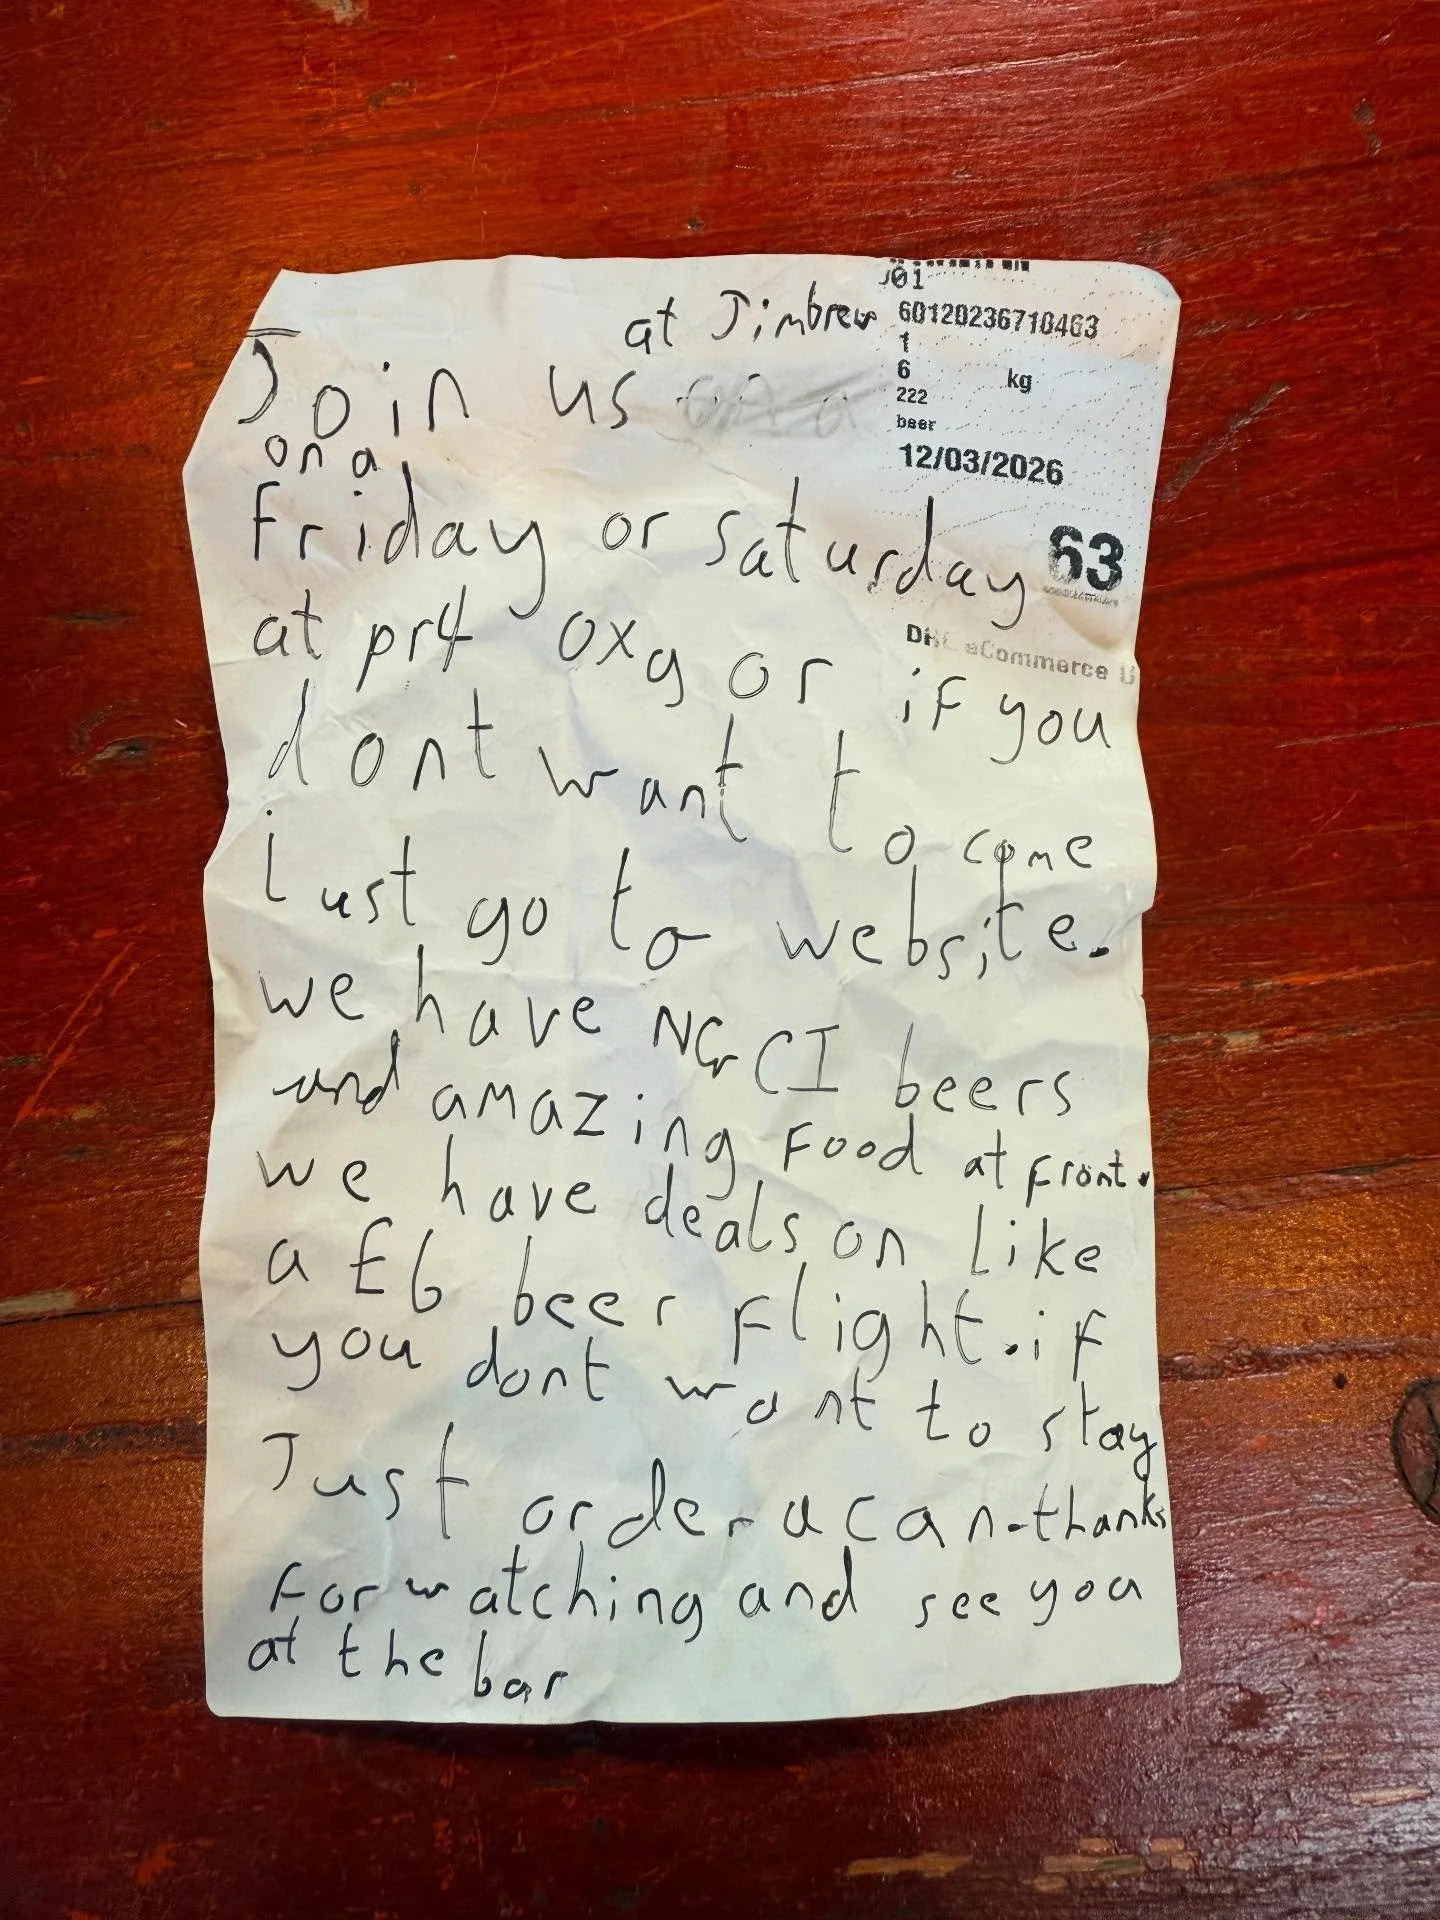 J01
60120236710463
1
6 kg
222
beer
12/03/2026
63
DHL eCommerce U
at Jimbrew
Join us
on a
Friday or saturday
at pr4 0xg or if you
dont want to come
Just go to website.
we have NGCI beers
and amazing Food at front.
we have deals on like
a £6 beer Flight. if
you dont want to stay
Just order a can. thanks
For watching and see you
at the bar